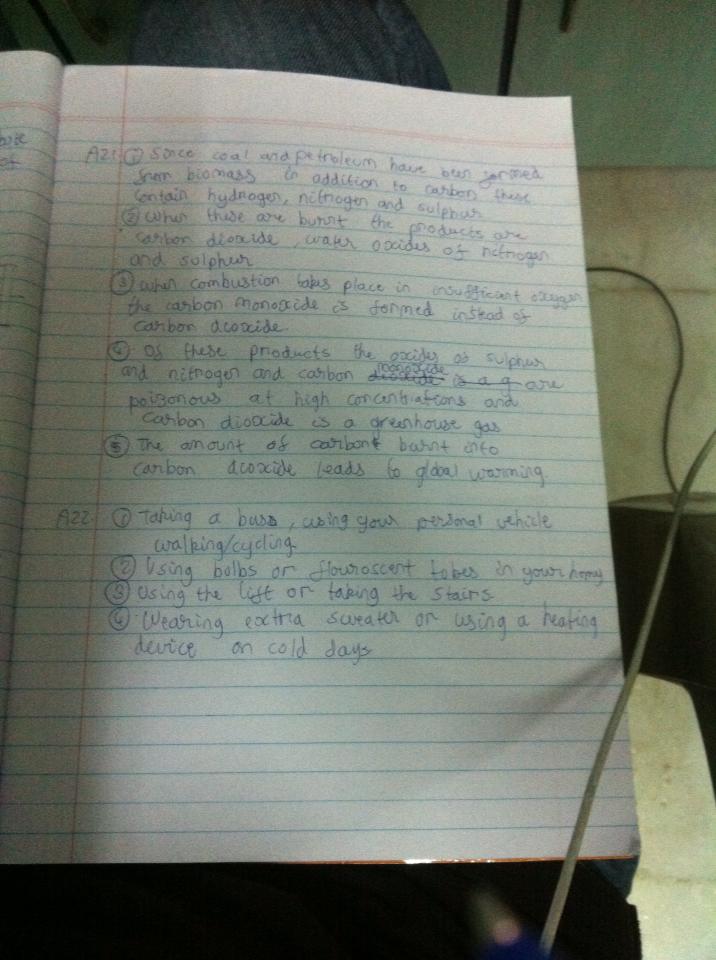 A21. ① Since coal and petroleum have been formed
from biomass in addition to carbon these
contain hydrogen, nitrogen and sulphur
② When these are burnt the products are
carbon dioxide, water oxides of nitrogen
and sulphur
③ when combustion takes place in insufficient oxygen
the carbon monoxide is formed instead of
carbon dioxide.
④ Of these products the oxides of sulphur
and nitrogen and carbon monoxide are
poisonous at high concentrations and
carbon dioxide is a greenhouse gas
⑤ The amount of carbon burnt into
carbon dioxide leads to global warming.
A22. ① Taking a bus, using your personal vehicle
walking/cycling
② Using bolbs or flouroscent tobes in your home
③ Using the lift or taking the stairs
④ Wearing extra sweater or using a heating
device on cold days